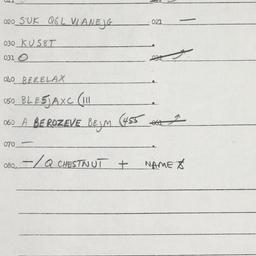 020 SUK Q6L VIANEJG 021 —
030 KUS8T
031 O
040 BERELAX
050 BLE5JAXC (111
060 A BEROZEVE BEJM (455
070 —
080 —/Q CHESTNUT + NAME